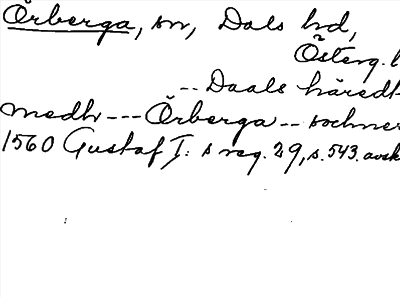 Örberga, sn, Dals hd,
Österg. l
-- Daals häredt
medh --- Örberga -- sochner
1560 Gustaf I: s reg. 29, s. 543. avsk